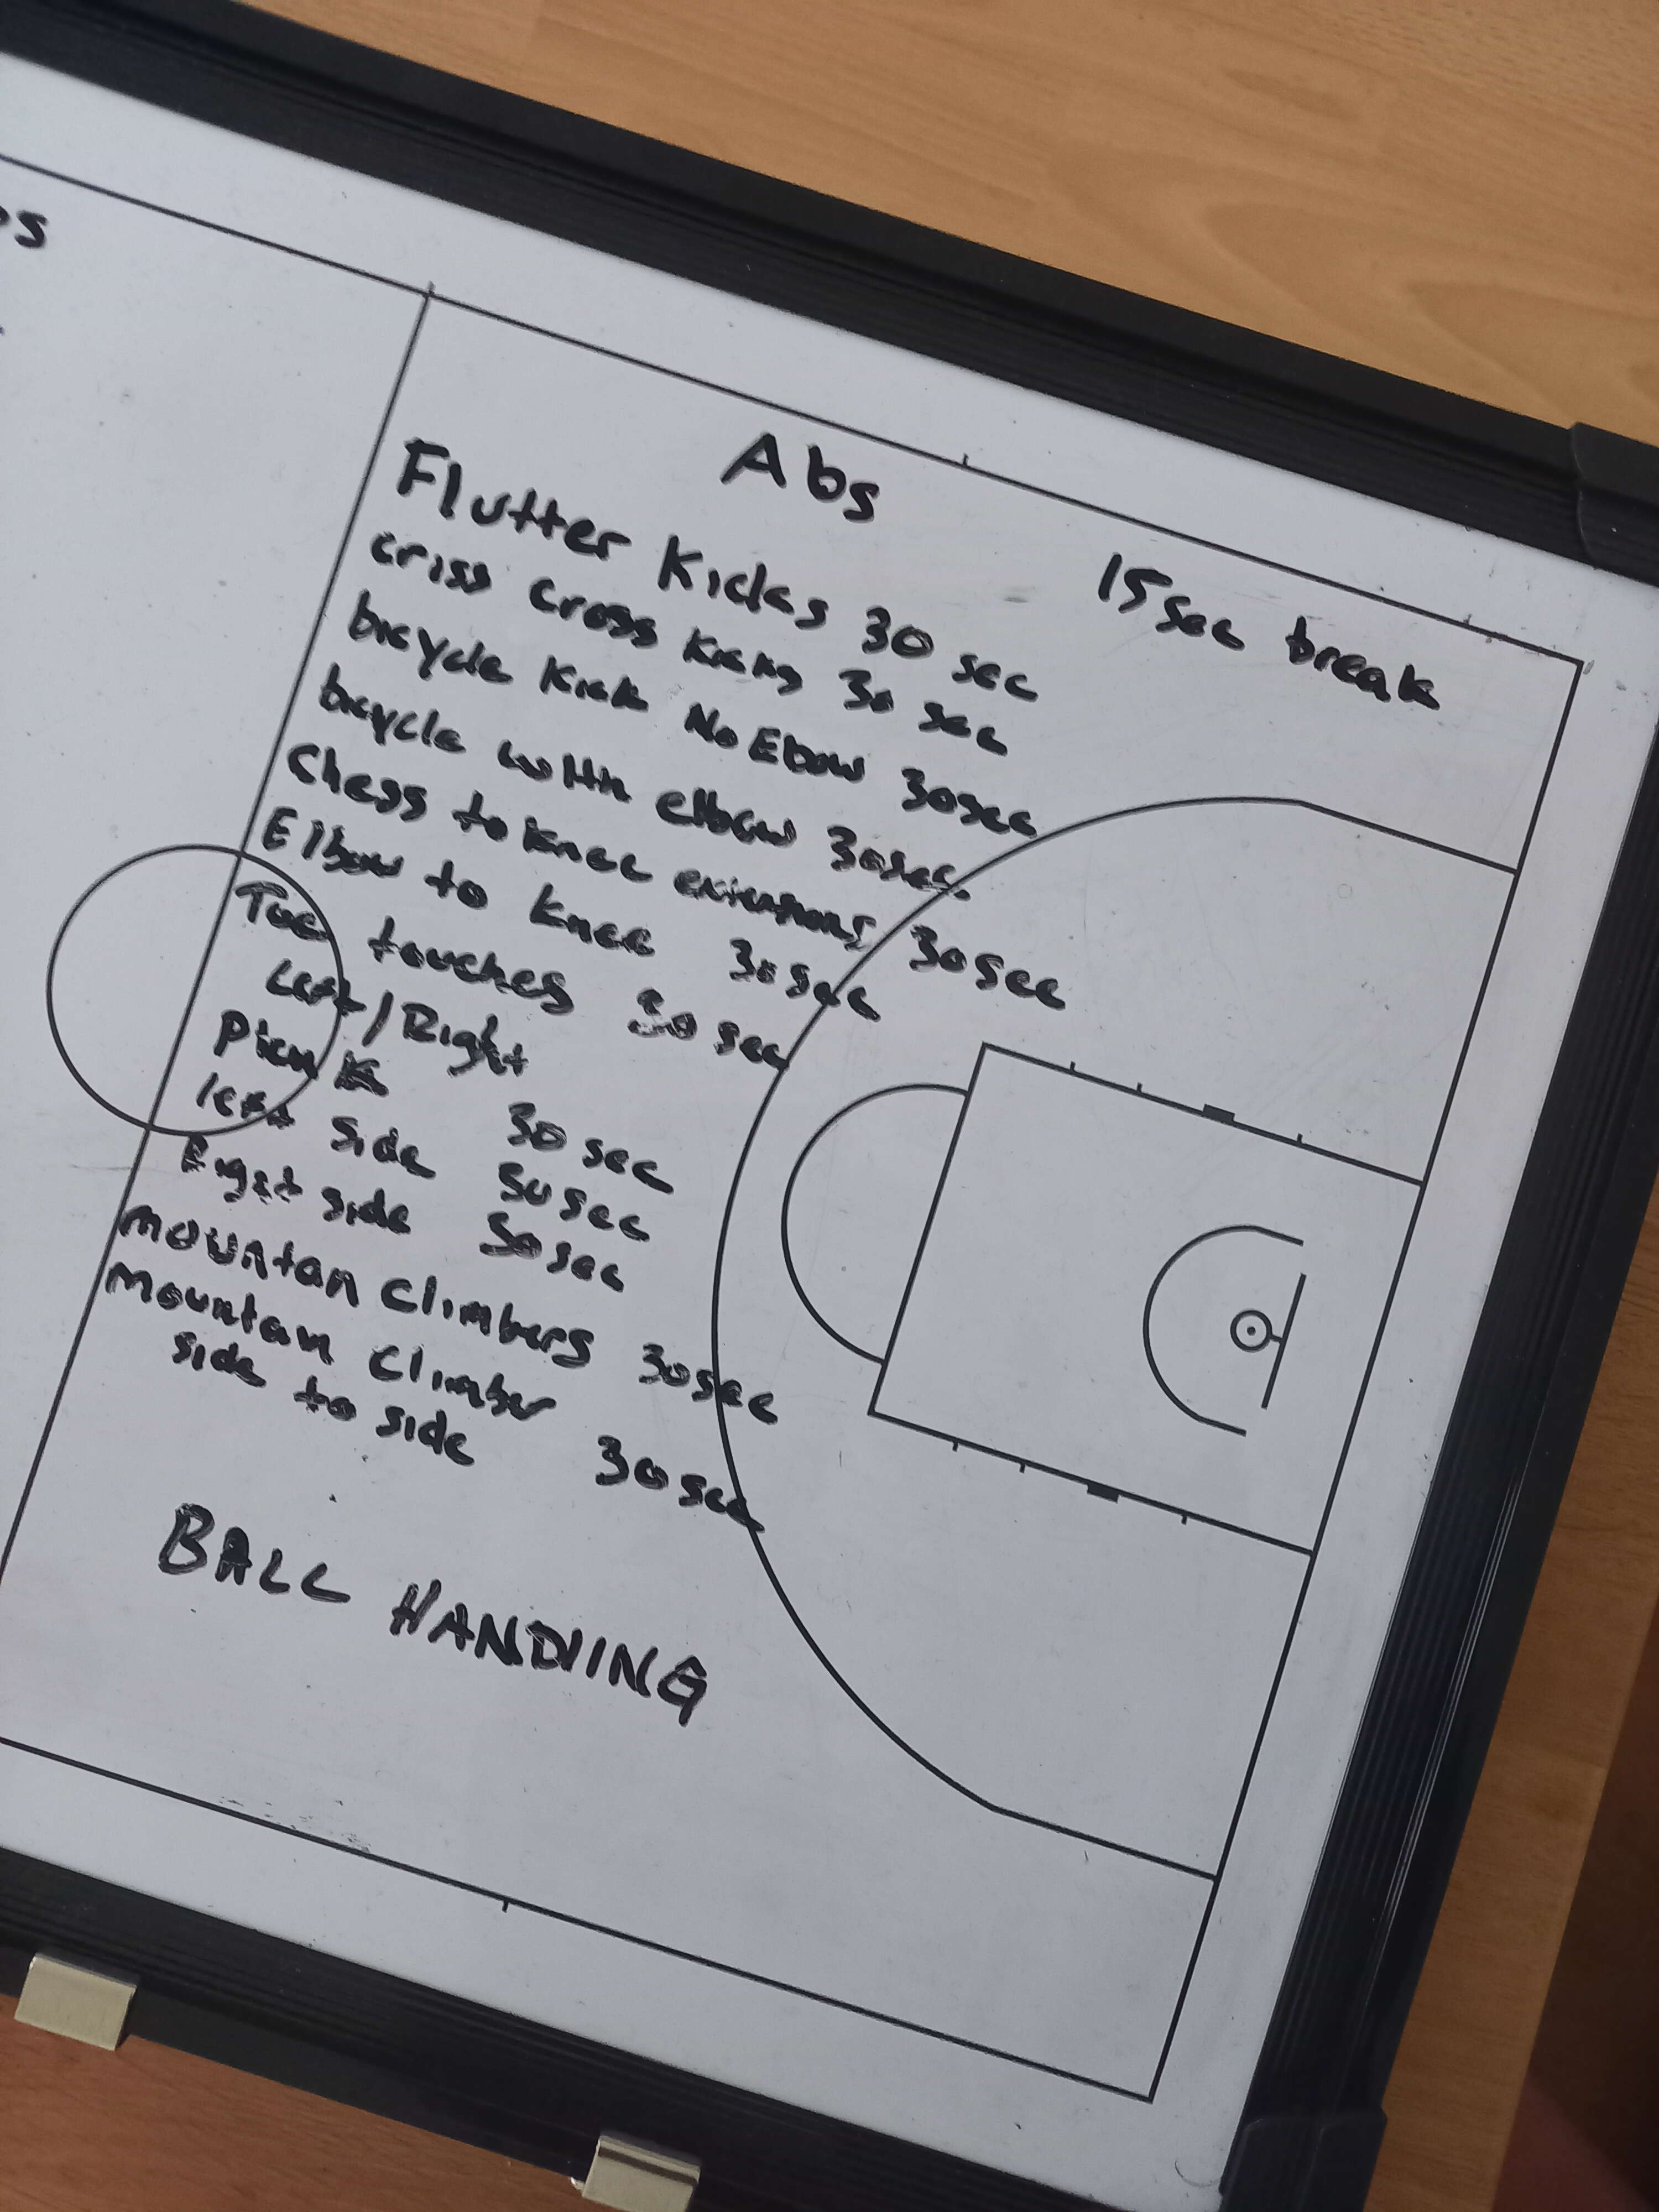 Abs
15 sec break
Flutter Kicks 30 sec
criss cross kicks 30 sec
bicycle kick No Ebow 30sec
bicycle with elbow 30sec.
Chess to knee extensions 30sec
Elbow to knee 30sec
Toe touches 30 sec
Left/Right
Plank 30 sec
left side 50sec
Right side 50sec
mountan climbers 30sec
mountan climber 30sec
side to side
BALL HANDlING